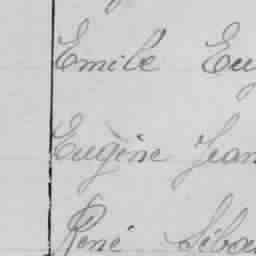 Emile Eug
Eugène Jean
René